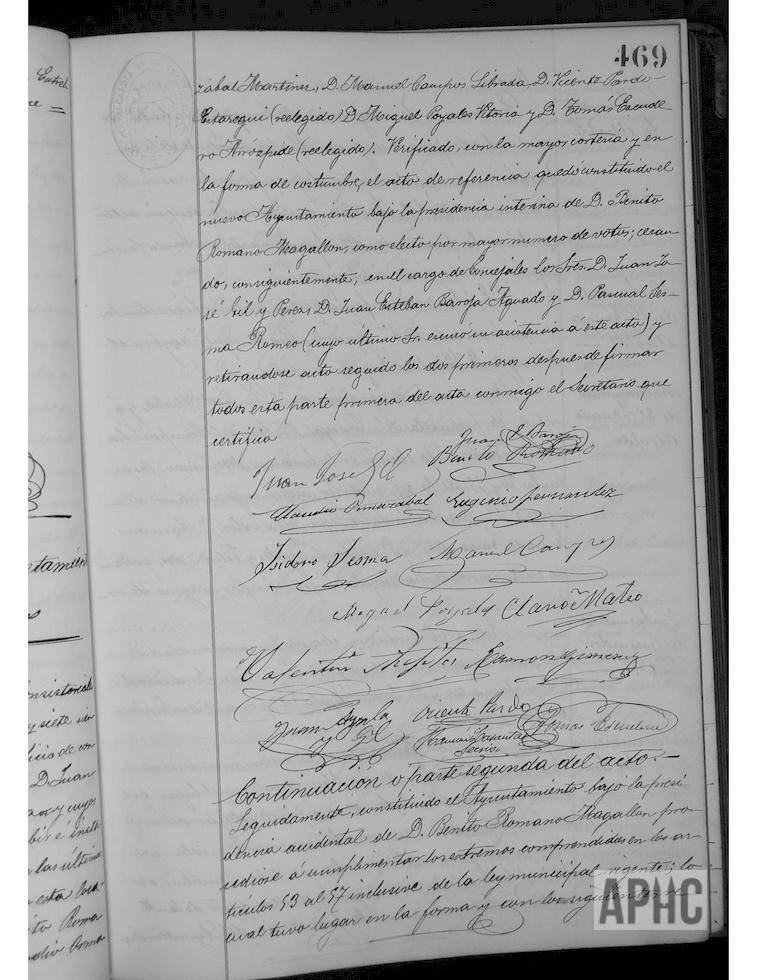 469
zabal Martinez, D. Manuel Campos Librada, D. Vicente Pardo
Estaregui (reelegido) D. Miguel Poyales Vitoria y D. Tomas Escude-
ro Aróspide (reelegido). Verificado, con la mayor cortesia y en
la forma de costumbre, el acto de referencia quedó constituido el
nuevo Ayuntamiento bajo la presidencia interina de D. Benito
Romano Magallon, como electo por mayor numero de votos; cesan-
do, consiguientemente, en el cargo de Concejales los Sres. D. Juan Jo-
sé Gil y Perez, D. Juan Esteban Baroja Aguado y D. Pascual Ses-
ma Romeo (cuyo ultimo Sr. escusó su asistencia á este acto) y
retirandose acto seguido los dos primeros despues de firmar
todos esta parte primera del acta conmigo el Secretario que
certifica
Juan E. Baroja
Juan Jose Gil Benito Romano
Claudio Ormazabal Eugenio Fernandez
Isidoro Sesma Manuel Campos
Miguel Poyales Mateo
Valentin Ramon Gimenez
Juan Ayala y Gil Vicente Pardo Tomas Escudero
Secrio
Continuacion ó parte segunda del acto.—
Seguidamente, constituido el Ayuntamiento bajo la presi-
dencia accidental de D. Benito Romano Magallon pro-
cedióse á cumplimentar los extremos comprendidos en los ar-
ticulos 53 al 57 inclusive de la ley municipal vigente; lo
cual tuvo lugar en la forma y con los siguientes
Entrad
etamien
onsistoriale
y siete
licio de con
D. Juan
y cuyos
bir é insta
las última
esta loca
ito Roma
APHC